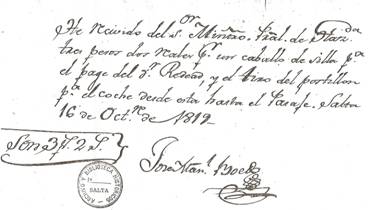 He recivido del S.or Minĩro. Gral. de Haz.da
tres pesos dos reales p.r un caballo de silla p.a
el page del y el tiro del postillon
p.a el coche desde esta hasta el Pasaje. Salta
16 de Oct.re de 1819
Son 3 p. 2 r.
Jose Man.l Boedo
ARCHIVO Y BIBLIOTECA HISTORICOS
SALTA